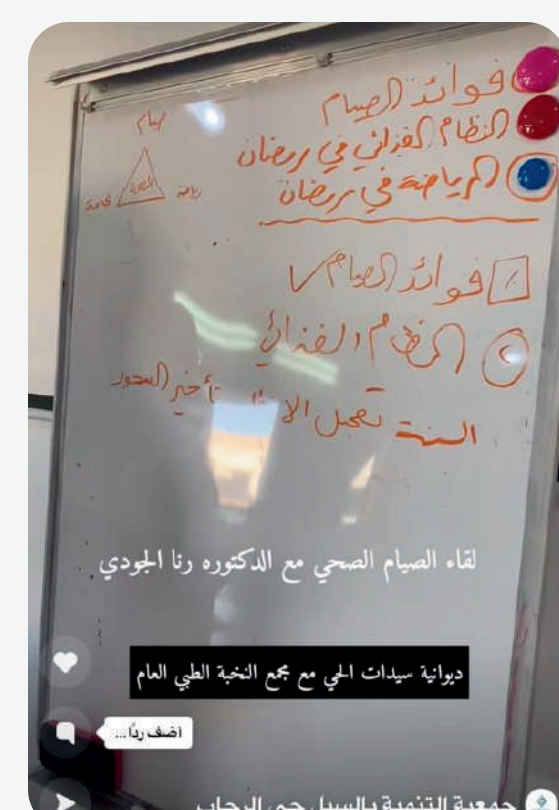 فوائد الصيام
النظام الغذائي في رمضان
الرياضة في رمضان
صيام
الصحة
رياضة
فوائد الصيام
النظام الغذائي
السنة تعجيل تأخير السحور
لقاء الصيام الصحي مع الدكتوره رنا الجودي
ديوانية سيدات الحي مع مجمع النخبة الطبي العام
أضف ردًا...
جمعية التنمية بالسيل حي الرحاب